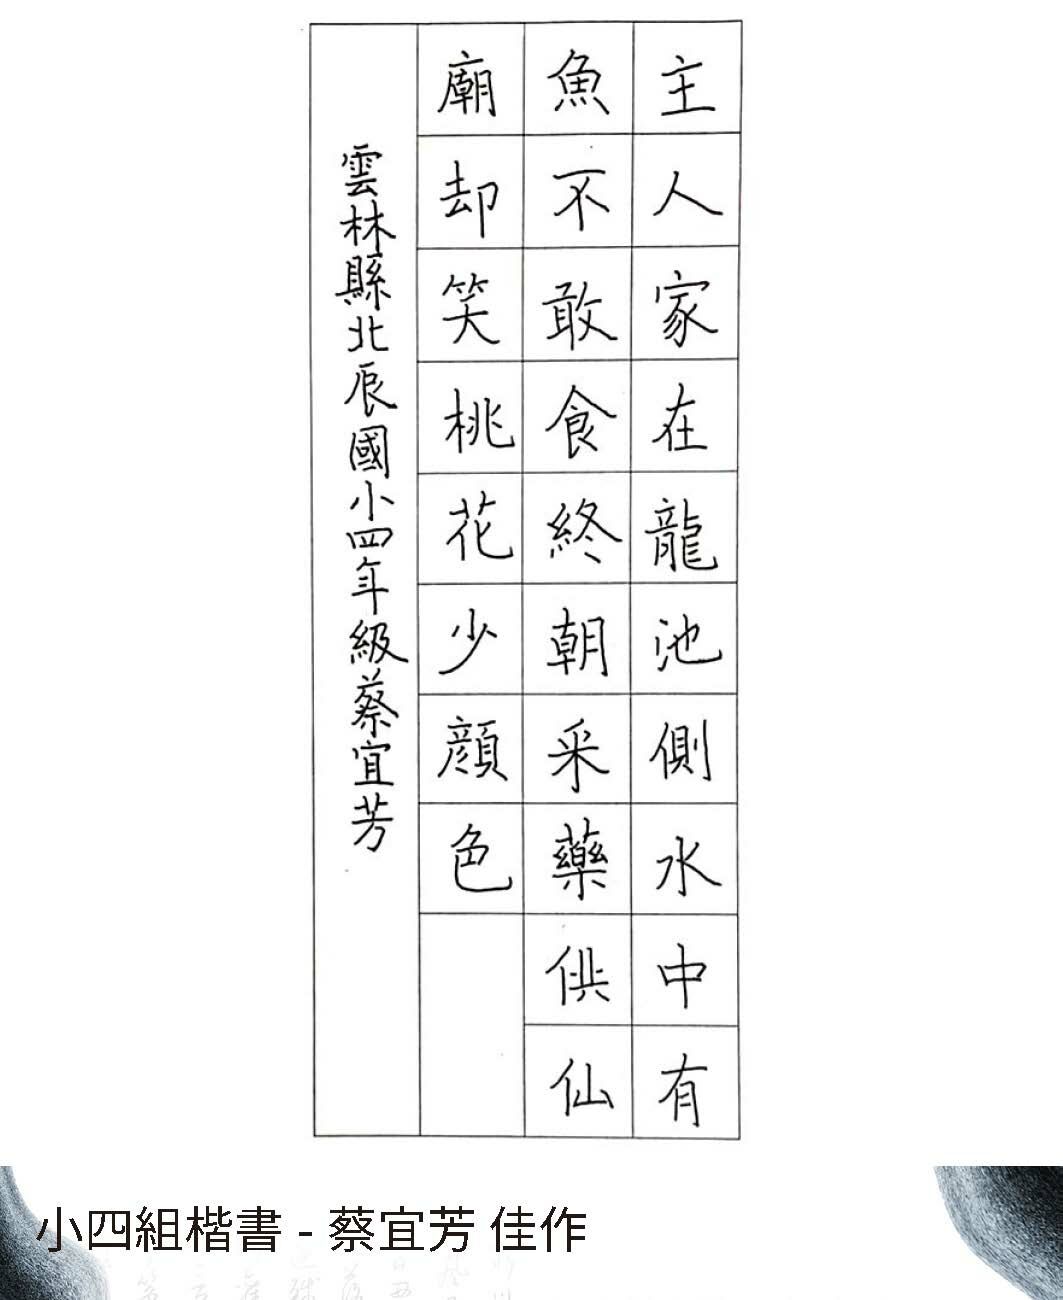 主人家在龍池側水中有
魚不敢食終朝采藥供仙
廟却笑桃花少顏色
雲林縣北辰國小四年級蔡宜芳
小四組楷書 - 蔡宜芳 佳作